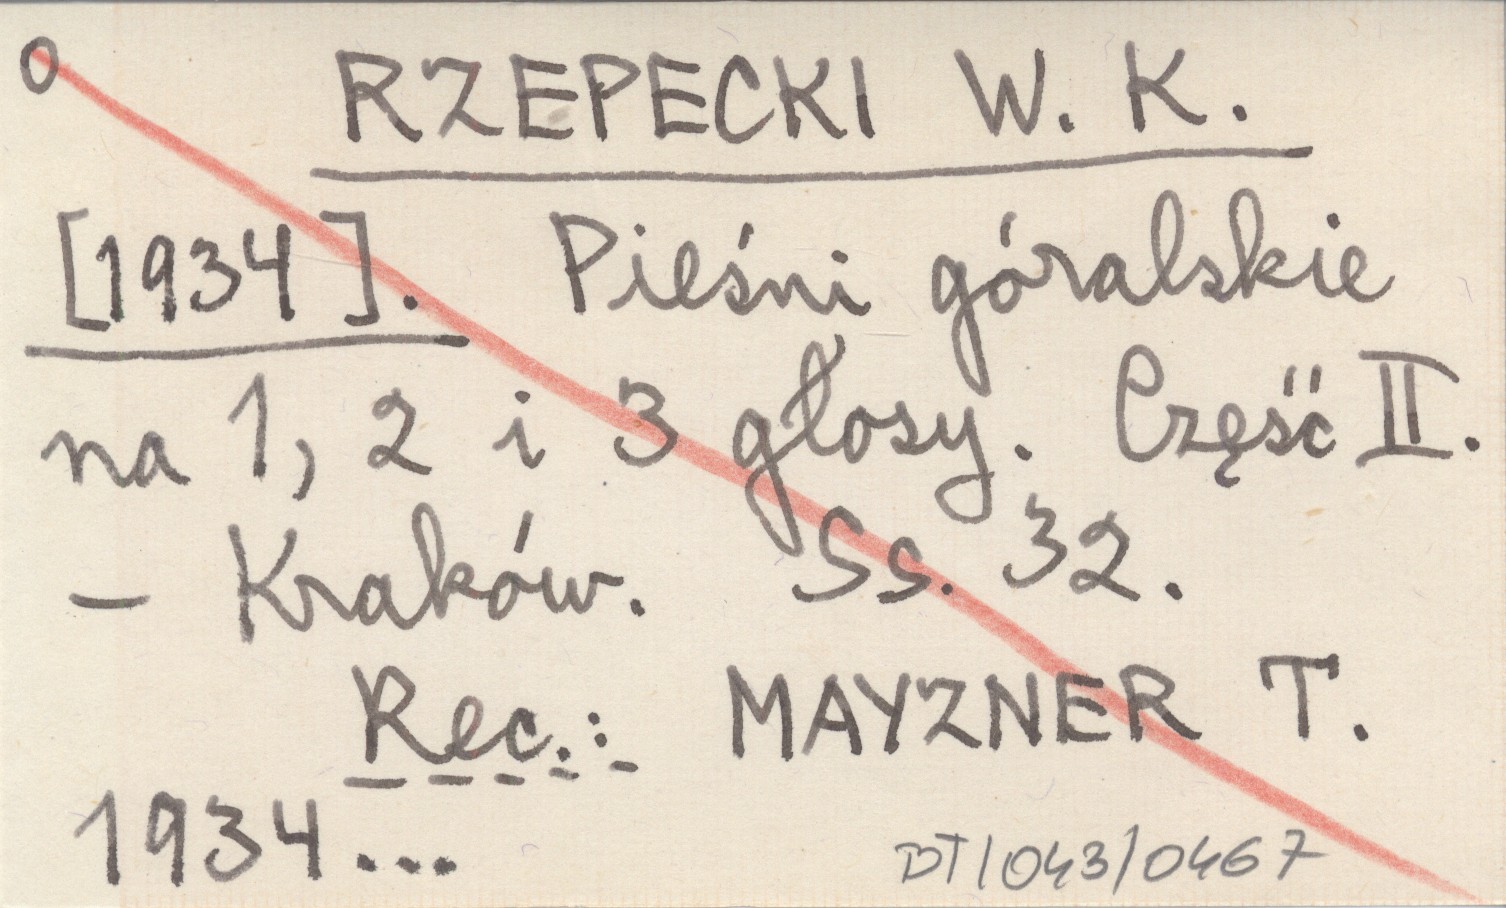 O RZEPECKI W. K.
[1934]. Pieśni góralskie
na 1, 2 i 3 głosy. Część II.
– Kraków. Ss. 32.
Rec.: MAYZNER T.
1934...
DT/043/0467